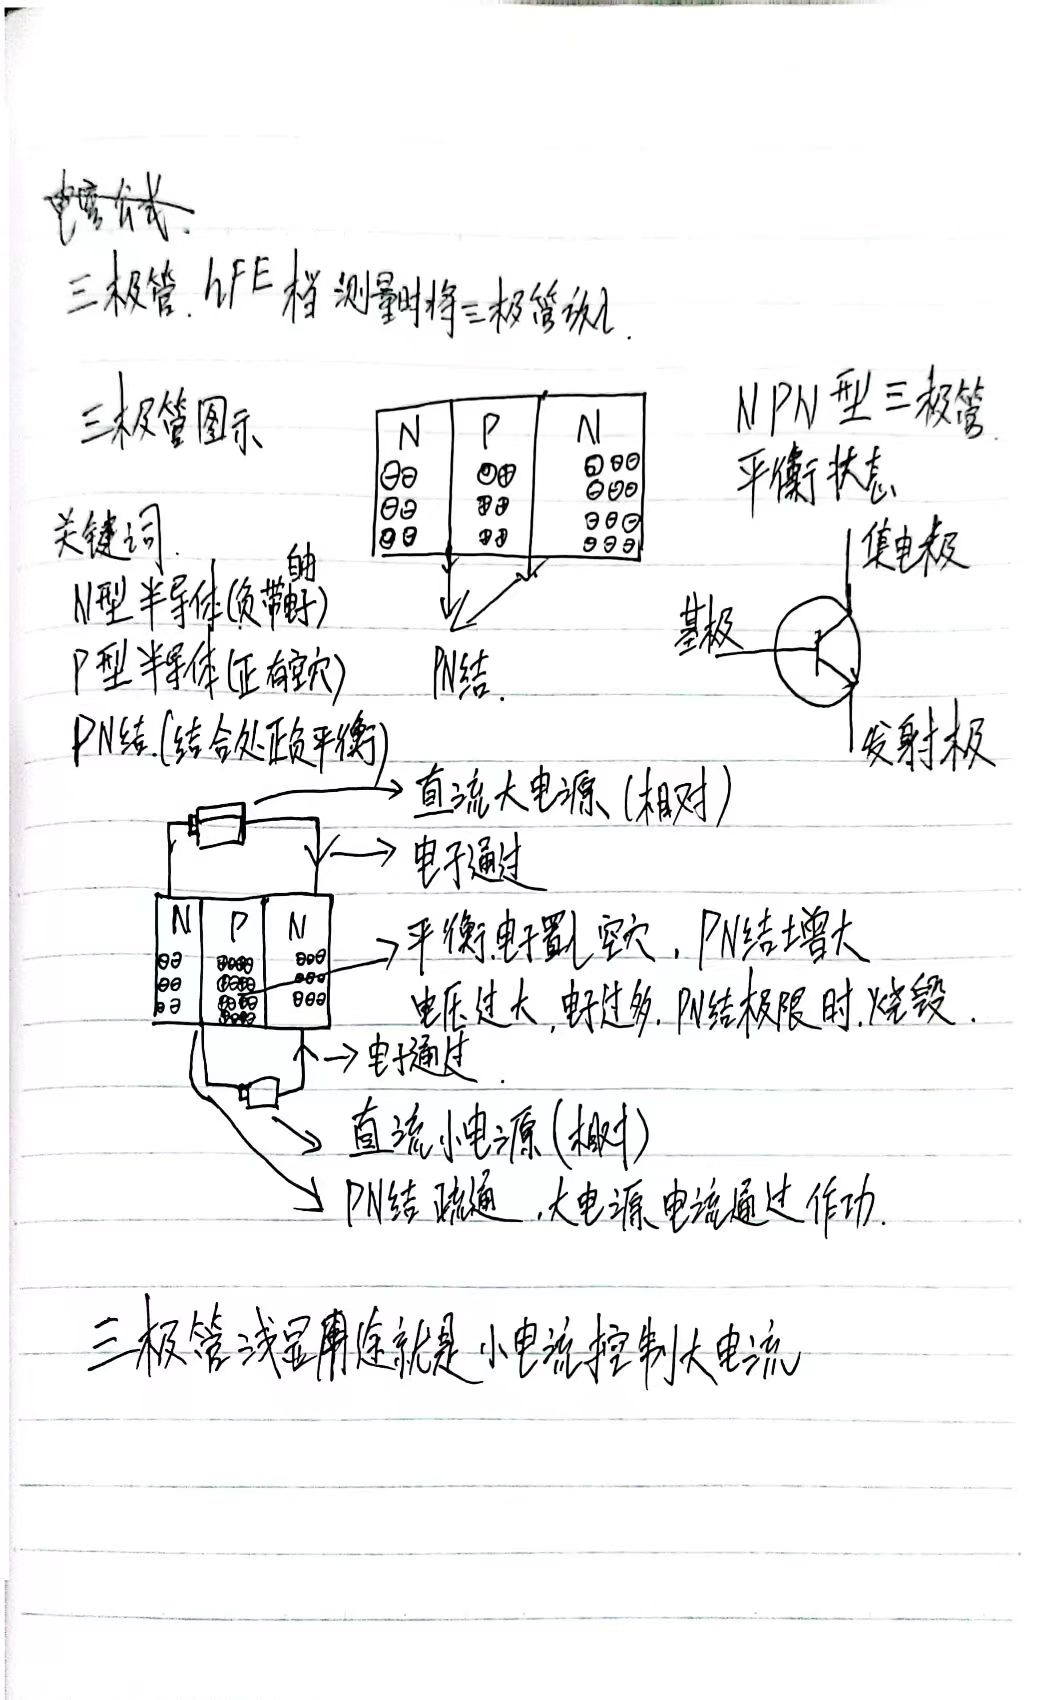 电容公式.
三极管.hFE档 测量时将三极管
三极管图示
N P N
NPN型三极管
平衡状态
集电极
基极
发射极
关键词.
自由
N型半导体(负带电子)
P型半导体(正有空穴)
PN结.
PN结.(结合处正负平衡)
直流大电源(相对)
电子通过
N P N
平衡.电子置 空穴,PN结增大
电压过大,电子过多.PN结极限时.烧毁.
电子通过.
直流小电源(相对)
PN结疏通,大电源电流通过作功.
三极管浅显用途就是小电流控制大电流